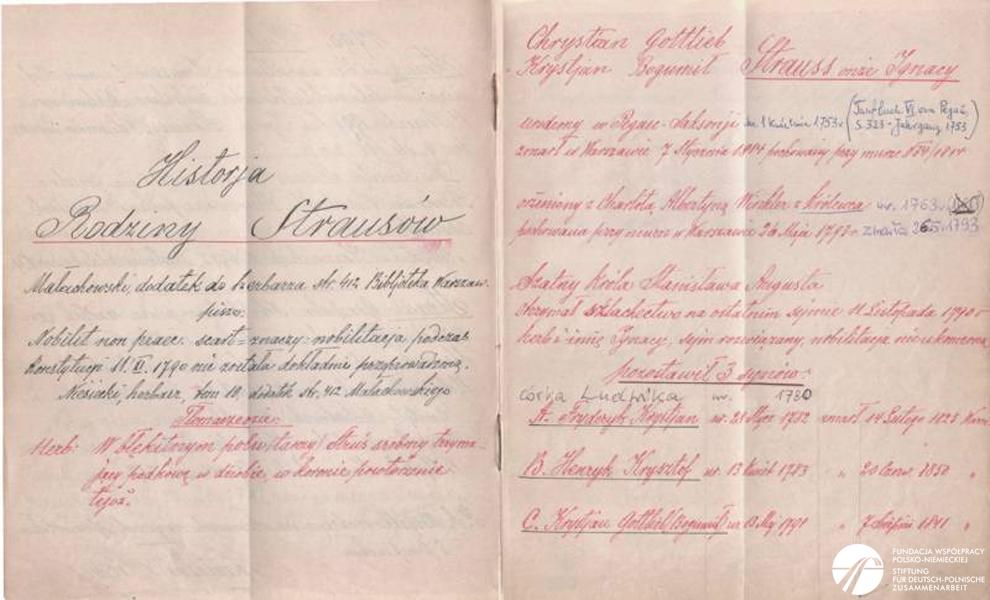 Historja
Rodziny Strausów
Małachowski, dodatek do herbarza str. 412 Bibljoteka Warszaw.
pisze:
Nobilit non praec. scart = znaczy = nobilitacja podczas
Konstytucji 11. XI. 1790 nie została dokładnie przeprowadzoną.
Niesiecki, herbarz, tom 10, dodatek str. 42 Małachowskiego
Tłomaczenie:
Herb: W błękitnym polu (tarczy) Struś srebrny trzyma-
jący podkowę w dziobie, w koronie powtórzenie
tegoż.
Chrystian Gottlieb
Krystjan Bogumił Strauss onże Ignacy
urodzony w Pegau-Saksonji dn. 1 Kwietnia 1753 r.
S. 323 - Jahrgang 1753
zmarł w Warszawie 7 Stycznia 1814 pochowany przy murze
ożeniony z Charlotą Albertyną Winkler z Królewca ur. 1763
pochowana przy murze w Warszawie 26 Maja 1793 r. zmarła 1793
Szatny Króla Stanisława Augusta
otrzymał szlachectwo na ostatnim sejmie 11 Listopada 1790 r
herb i imię Ignacy, sejm rozwiązany, nobilitacja nieukończona,
pozostawił 3 synów:
córka Ludwika ur. 1780
A. Fryderyk Krystjan ur. 21 1782 zmarł 14 Lutego Warsz.
B. Henryk Krysztof ur. 13 Kwiet 1783 " 20 Czerw. 1850 "
C. Krystjan Gottlieb (Bogumił) ur. 13 Maj 1791 " 7 Sierpnia 1841 "
FUNDACJA WSPÓŁPRACY
POLSKO-NIEMIECKIEJ
STIFTUNG
FÜR DEUTSCH-POLNISCHE
ZUSAMMENARBEIT